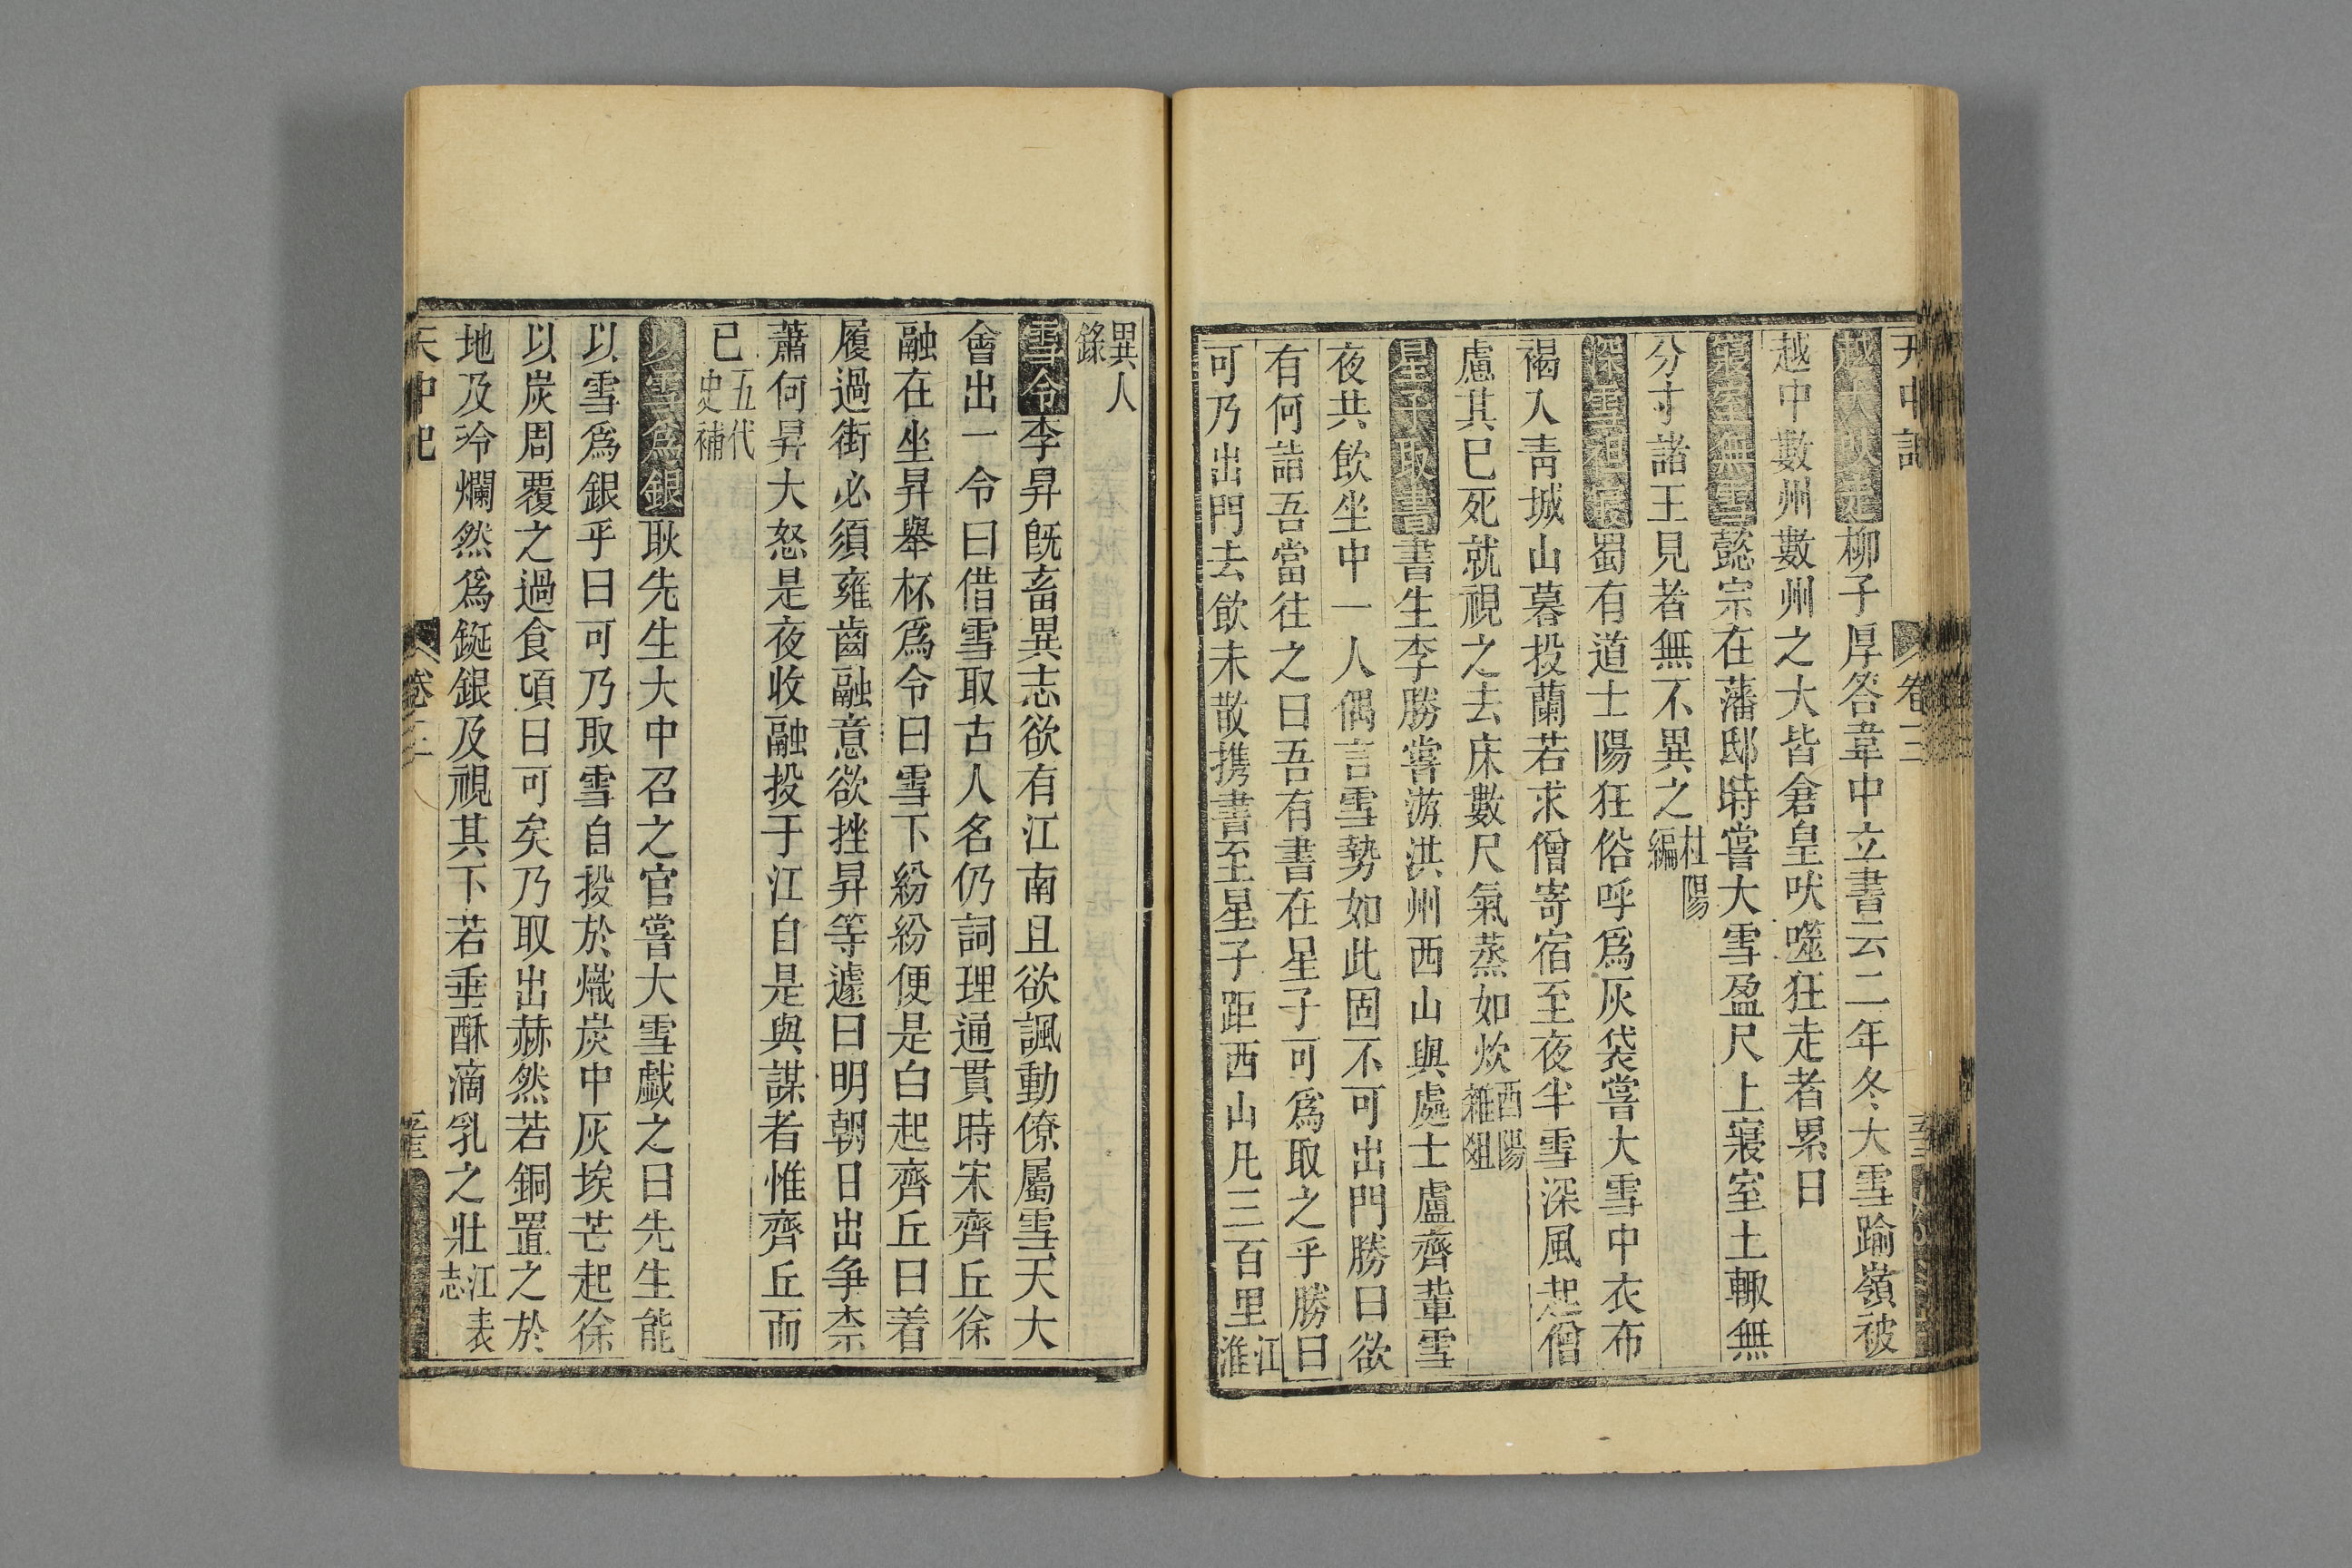 天中記 卷三
越犬吠走柳子厚答韋中立書云二年冬大雪踰嶺被
越中數州數州之大皆倉皇吠噬狂走者累日
寢室無雪懿宗在藩邸時嘗大雪盈尺上寢室土輙無
分寸諸王見者無不異之杜陽編
深雪袒裼蜀有道士陽狂俗呼爲灰袋嘗大雪中衣布
褐入青城山暮投蘭若求僧寄宿至夜半雪深風起僧
慮其巳死就視之去床數尺氣蒸如炊酉陽雜俎
星子取書書生李勝嘗游洪州西山與處士盧齊軰雪
夜共飲坐中一人偶言雪勢如此固不可出門勝曰欲
有何詣吾當往之曰吾有書在星子可爲取之乎勝曰
可乃出門去飲未散携書至星子距西山凡三百里江淮
異人錄
雪令李昇旣畜異志欲有江南且欲諷動僚屬雪天大
會出一令曰借雪取古人名仍詞理通貫時宋齊丘徐
融在坐昇舉杯爲令曰雪下紛紛便是白起齊丘曰着
履過街必須雍齒融意欲挫昇等遽曰明朝日出争柰
蕭何昇大怒是夜收融投于江自是與謀者惟齊丘而
已五代史補
以雪爲銀耿先生大中召之宮嘗大雪戱之曰先生能
以雪爲銀乎曰可乃取雪自投於熾炭中灰埃芒起徐
以炭周覆之過食頃曰可矣乃取出赫然若銅置之於
地及冷爛然爲鋌銀及視其下若垂酥滴乳之壯江表志
天中記 卷三